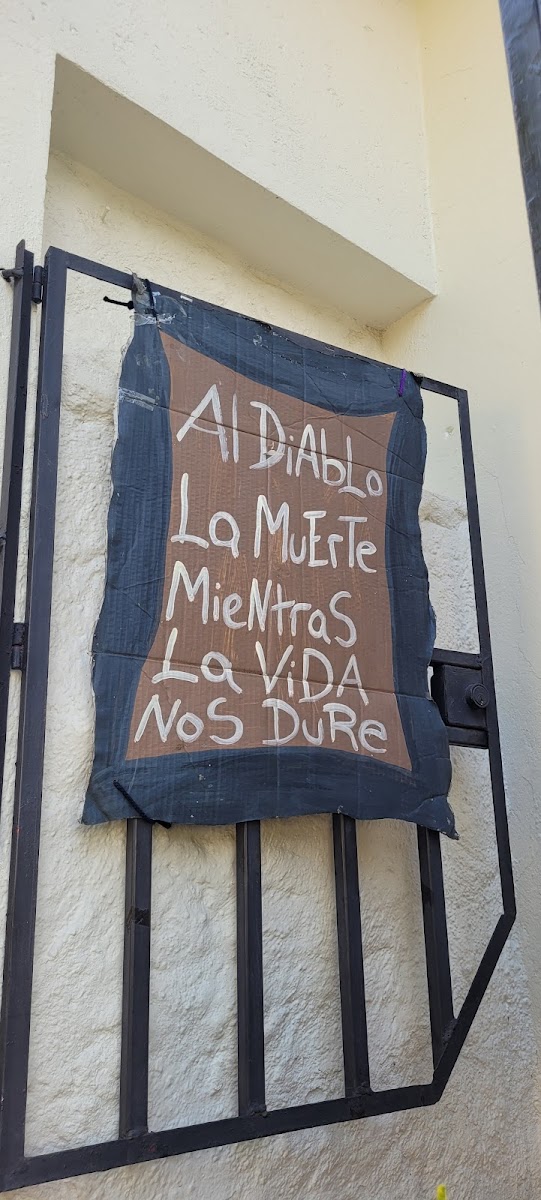 Al DiAbLo
La MuErTe
MieNtraS
La ViDA
NoS DuRe